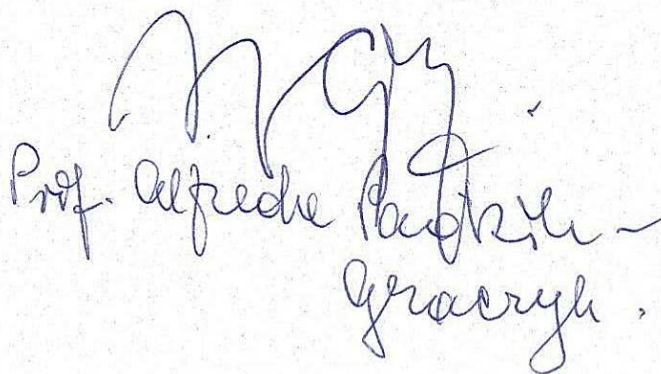 Prof. Alfreda Padzik-
Graczyk.